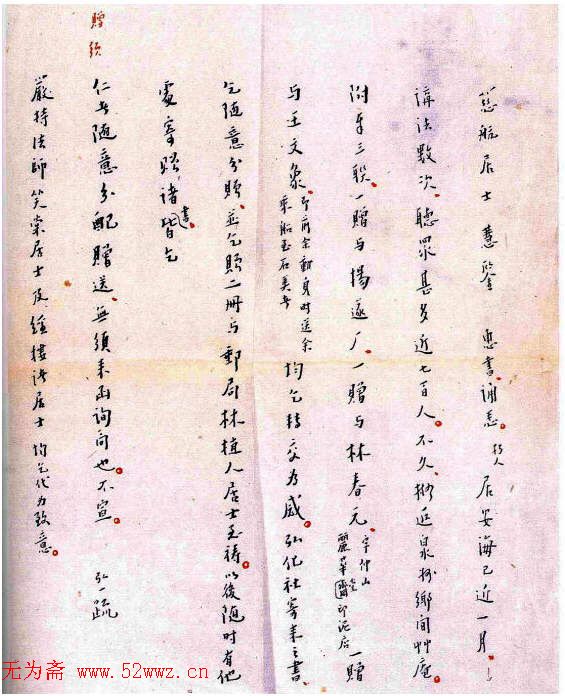 慈航居士 慧鑒 惠書誦悉。朽人居安海已近一月。
講法數次。聽眾甚多近七百人。不久擬返泉州鄉間艸庵。
附奉三聯一贈与楊邃厂一贈与林春元。字仲山 麗華 印泥店 一贈
与王文象。即前余動身時送余 乘船 均乞轉交为感。弘化社寄来之書
乞隨意分贈。並乞贈二冊与郵局林植人居士至禱。以後隨时有他
處寄贈諸書皆乞
仁者隨意分配贈送。無須来函詢问也。不宣。 弘一疏
贈
嚴持法師笑棠居士及經樓諸居士均乞代为致意。
无为斋 www.52wwz.cn